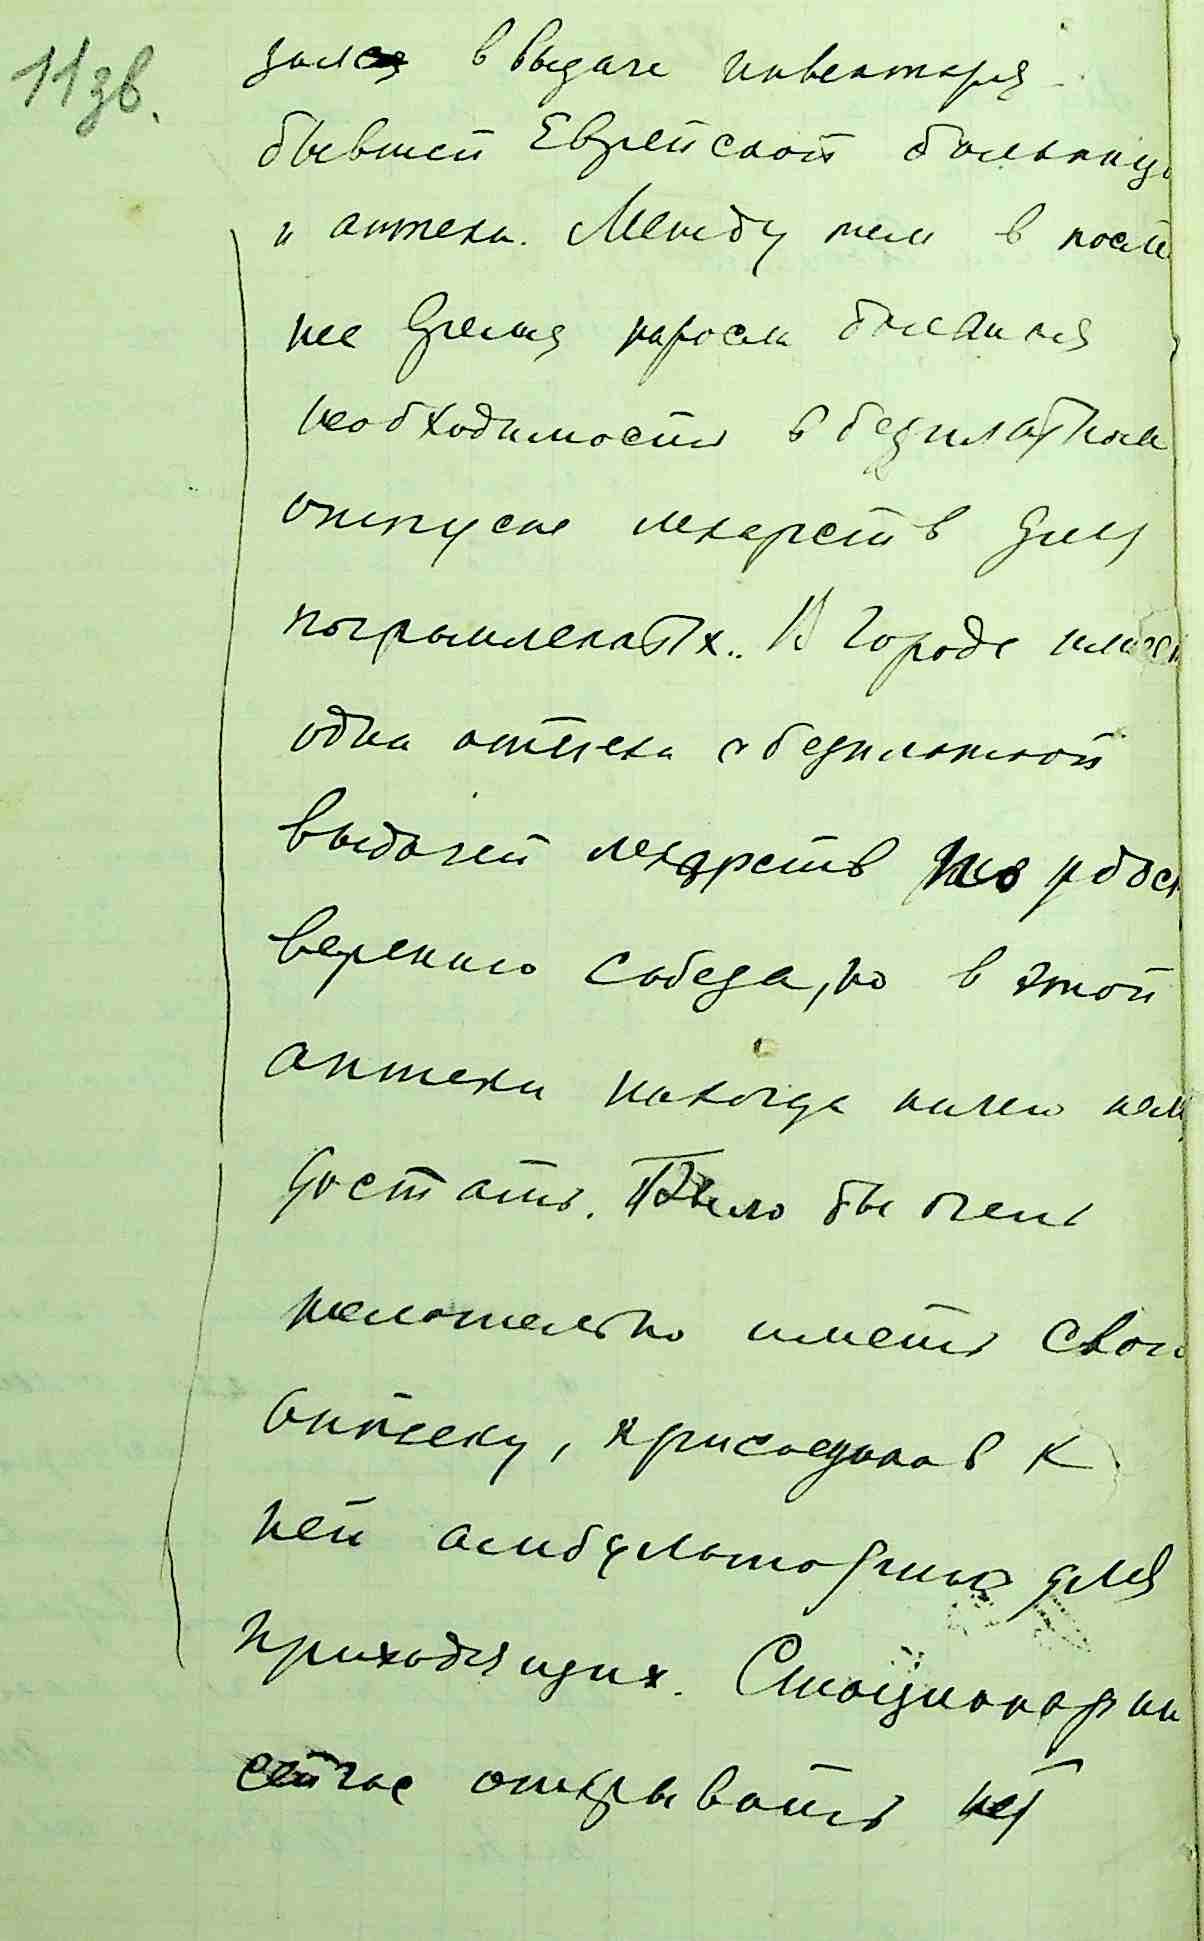 11 зв.
зался в выдаче инвентаря
бывшей Еврейской больницы
и аптеки. Между тем в послед
нее время назрела большая
необходимость в безплатном
отпуске лекарств для
погромленных. В городе имеет
одна аптека с безплатной
выдачей лекарств по удост
верению Собеза, но в этой
аптеки никогда ничего нель
достать. Было бы очень
желательно иметь свою
аптеку, присоединив к
ней амбулаторию для
приходящих. Стационарн
сейчас открывать нет